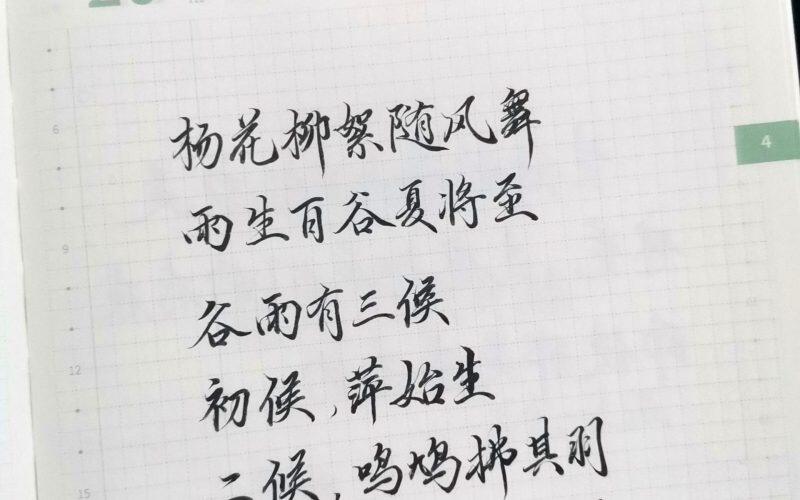 4
6
杨花柳絮随风舞
雨生百谷夏将至
9
谷雨有三候
12
初候,萍始生
二候,鸣鸠拂其羽
15